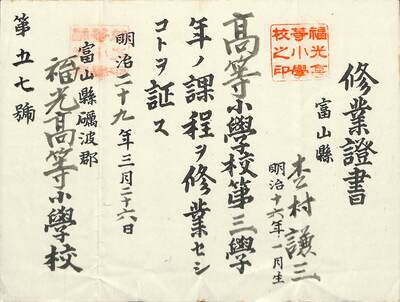 修業證書
富山縣
杢村謙三
明治十六年一月生
高等小學校第三學
年ノ課程ヲ修業セシ
コトヲ証ス
明治二十九年三月二十六日
富山縣礪波郡
福光高等小學校
第五七號
福光高
等小學
校之印